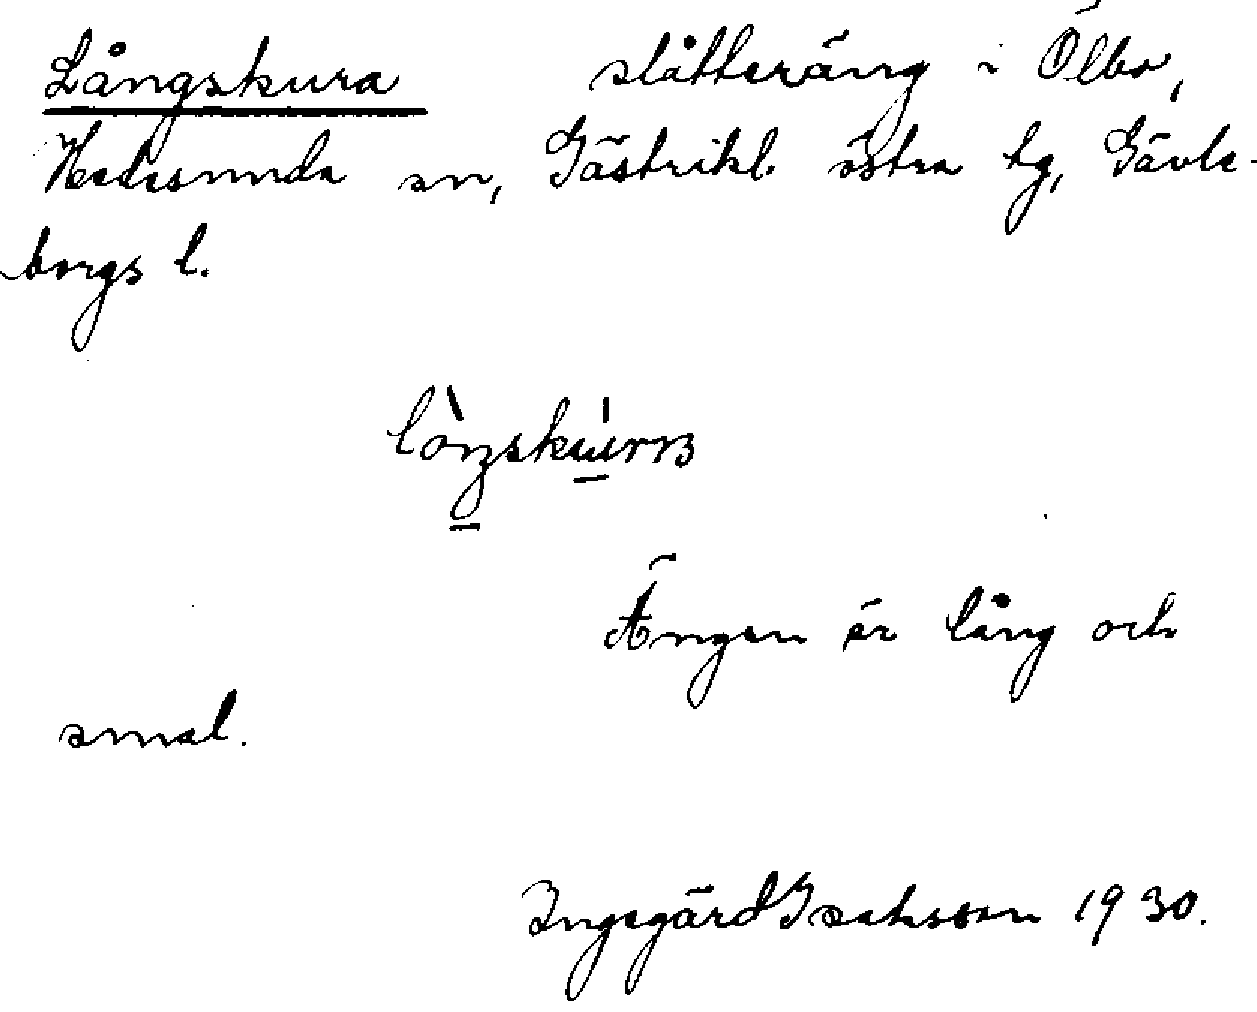 Långskura slåtteräng i Ölbo,
Hedesunda sn, Gästrikl. östra tg, Gävle-
borgs l.
Ängen är lång och
smal.
Ingegärd Isaksson 1930.